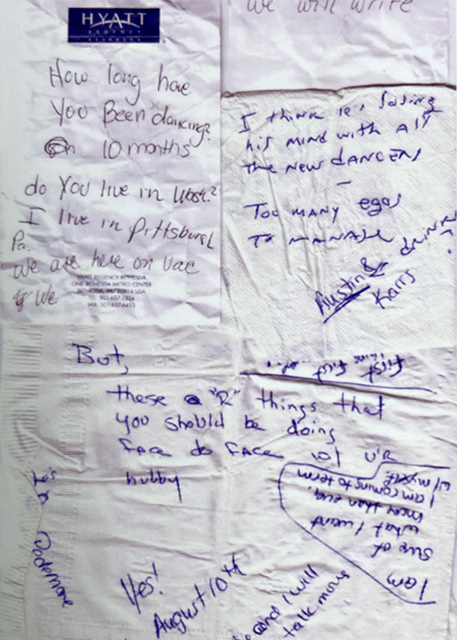 HYATT
REGENCY
BETHESDA
How long have
You Been dancing?
10 months
do You live in Wash.?
I live in Pittsburgh
Pa.
We are here on vac
We
HYATT REGENCY BETHESDA
ONE BETHESDA METRO CENTER
BETHESDA, MD 20814 USA
TEL: 301-657-1234
FAX: 301-657-6453
we will write
I think he's losing
his mind with all
the new dancers
–
Too many egos
to manage
Austin &
Karrs
drinks?
But,
these R things that
you should be doing
face to face w/ u'r
hubby
first
first
I am
sure of
what I want
more than ever.
I am coming to term
w/ myself
Yes!
August 10th
and I will
talk more